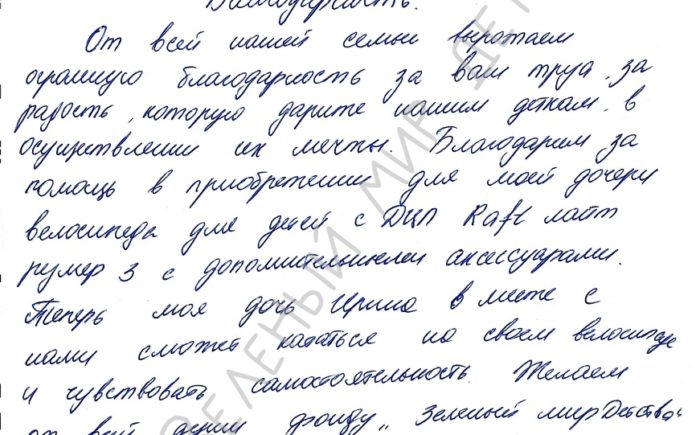 Благодарность.
От всей нашей семьи выражаем
огромную благодарность за ваш труд, за
радость, которую дарите нашим деткам, в
осуществлении их мечты. Благодарим за
помощь в приобретении для моей дочери
велосипеда для детей с ДЦП Raft лайт
размер 3 с дополнительными аксессуарами.
Теперь моя дочь Ирина в месте с
нами сможет кататься на своем велосипеде
и чувствовать самостоятельность. Желаем
от всей души фонду „Зеленый мир Детства"
ЗЕЛЕНЫЙ МИР ДЕТ